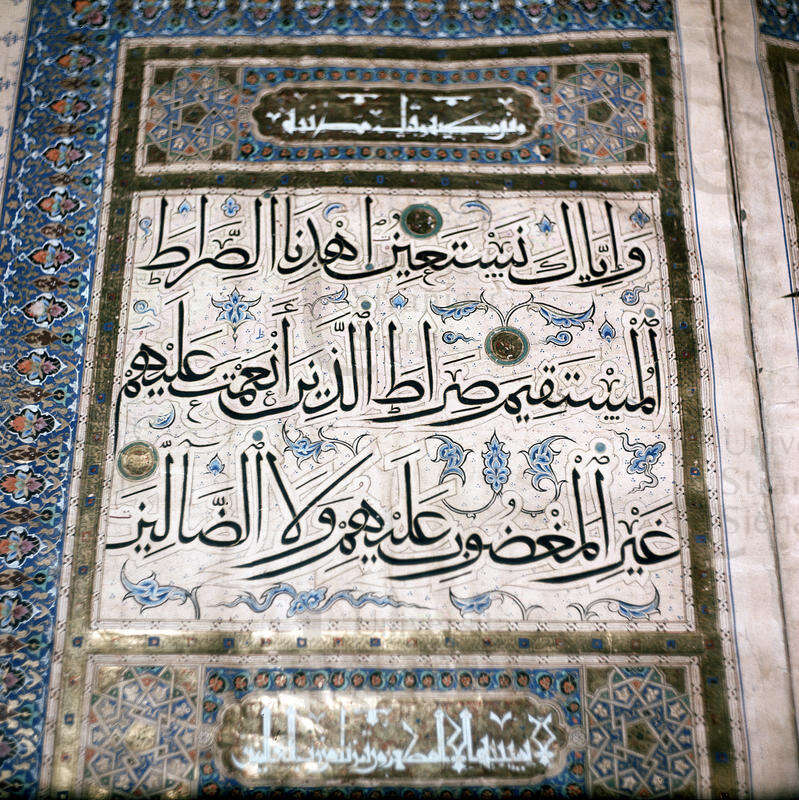 وإياك نستعين اهدنا الصراط
المستقيم صراط الذين أنعمت عليهم
غير المغضوب عليهم ولا الضالين
لا يمسه إلا المطهرون تنزيل من رب العالمين